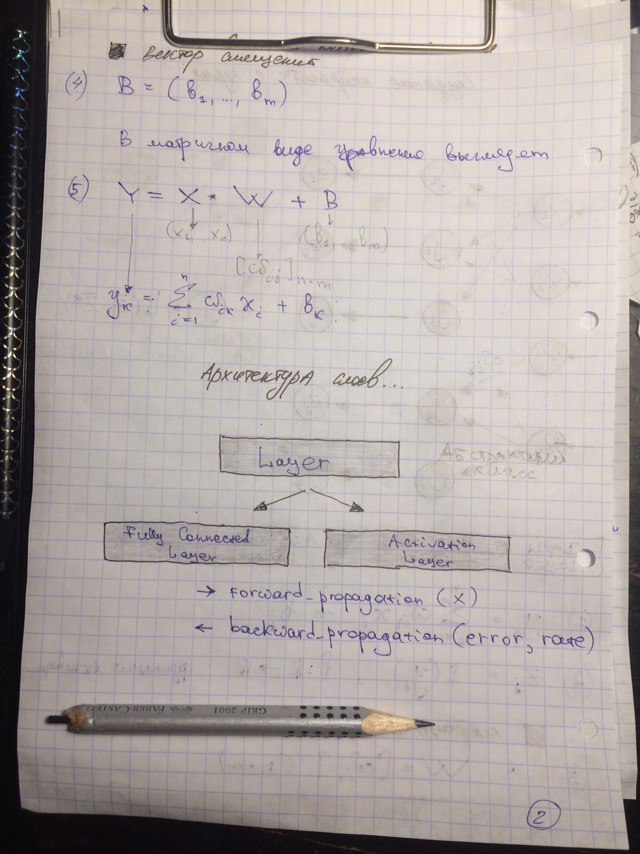 вектор смещения
(4) B = (b₁, ..., bₘ)
В матричном виде уравнение выглядет
(5) Y = X * W + B
(x₁ .. xₙ) (b₁ .. bₘ)
[ωᵢⱼ]ₙ×ₘ
yₖ = Σⁿᵢ₌₁ ωᵢₖ xᵢ + bₖ
Архитектура слоев...
Layer
Fully Connected Layer
Activation Layer
→ forward_propagation (X)
← backward_propagation (error, rate)
GRIP 2001 FABER-CASTELL
2